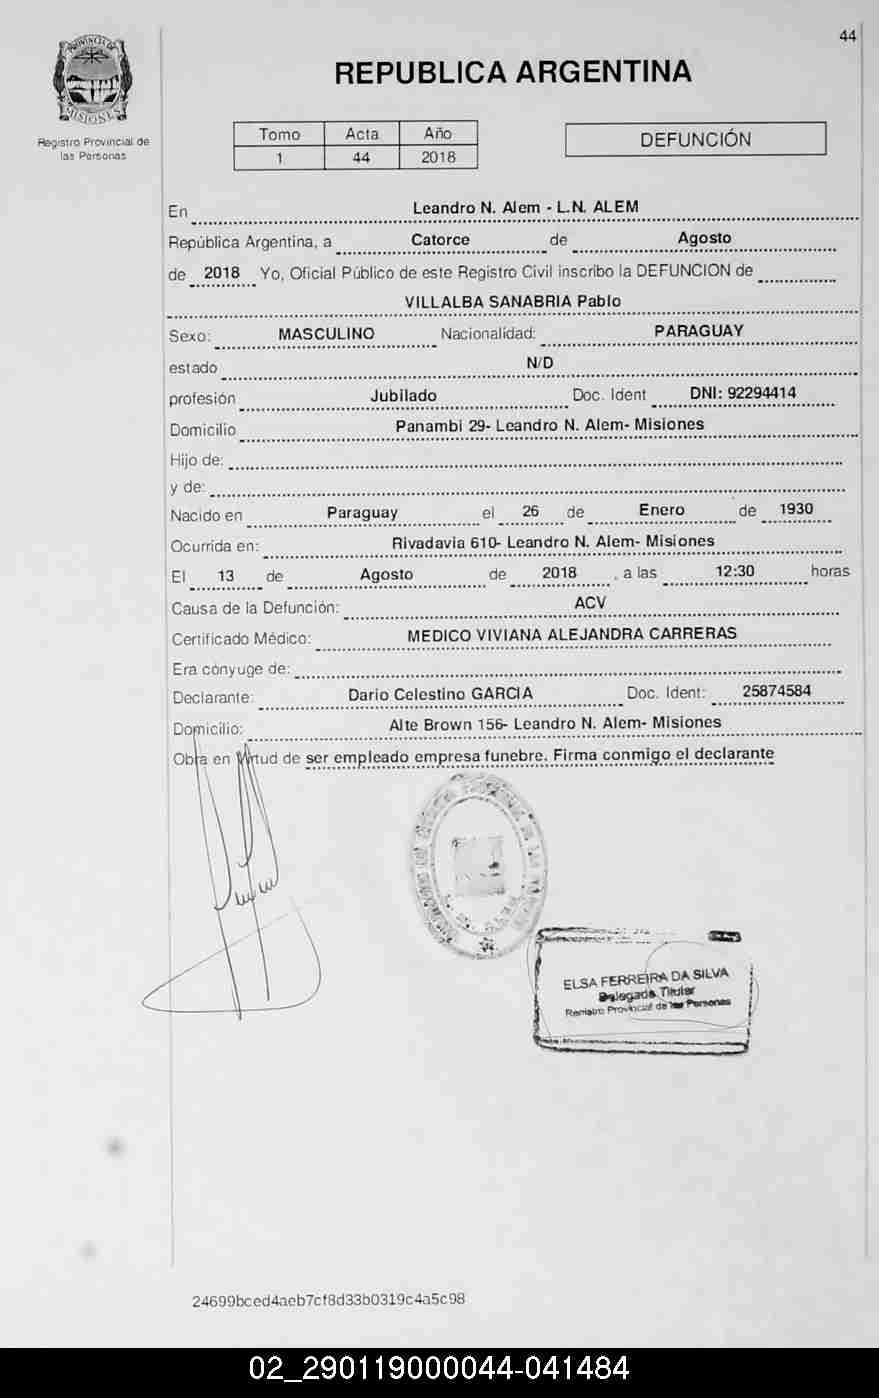 44
PROVINCIA DE
MISIONES
Registro Provincial de
las Personas
REPUBLICA ARGENTINA
Tomo Acta Año
1 44 2018
DEFUNCIÓN
En Leandro N. Alem - L.N. ALEM
República Argentina, a Catorce de Agosto
de 2018 Yo, Oficial Público de este Registro Civil inscribo la DEFUNCION de
VILLALBA SANABRIA Pablo
Sexo: MASCULINO Nacionalidad: PARAGUAY
estado N/D
profesión Jubilado Doc. Ident DNI: 92294414
Domicilio Panambi 29- Leandro N. Alem- Misiones
Hijo de:
y de:
Nacido en Paraguay el 26 de Enero de 1930
Ocurrida en: Rivadavia 610- Leandro N. Alem- Misiones
El 13 de Agosto de 2018 , a las 12:30 horas
Causa de la Defunción: ACV
Certificado Médico: MEDICO VIVIANA ALEJANDRA CARRERAS
Era cónyuge de:
Declarante: Dario Celestino GARCIA Doc. Ident: 25874584
Domicilio: Alte Brown 156- Leandro N. Alem- Misiones
Obra en virtud de ser empleado empresa funebre. Firma conmigo el declarante
ELSA FERREIRA DA SILVA
Delegada Titular
Registro Provincial de las Personas
24699bced4aeb7cf8d33b0319c4a5c98
02_290119000044-041484